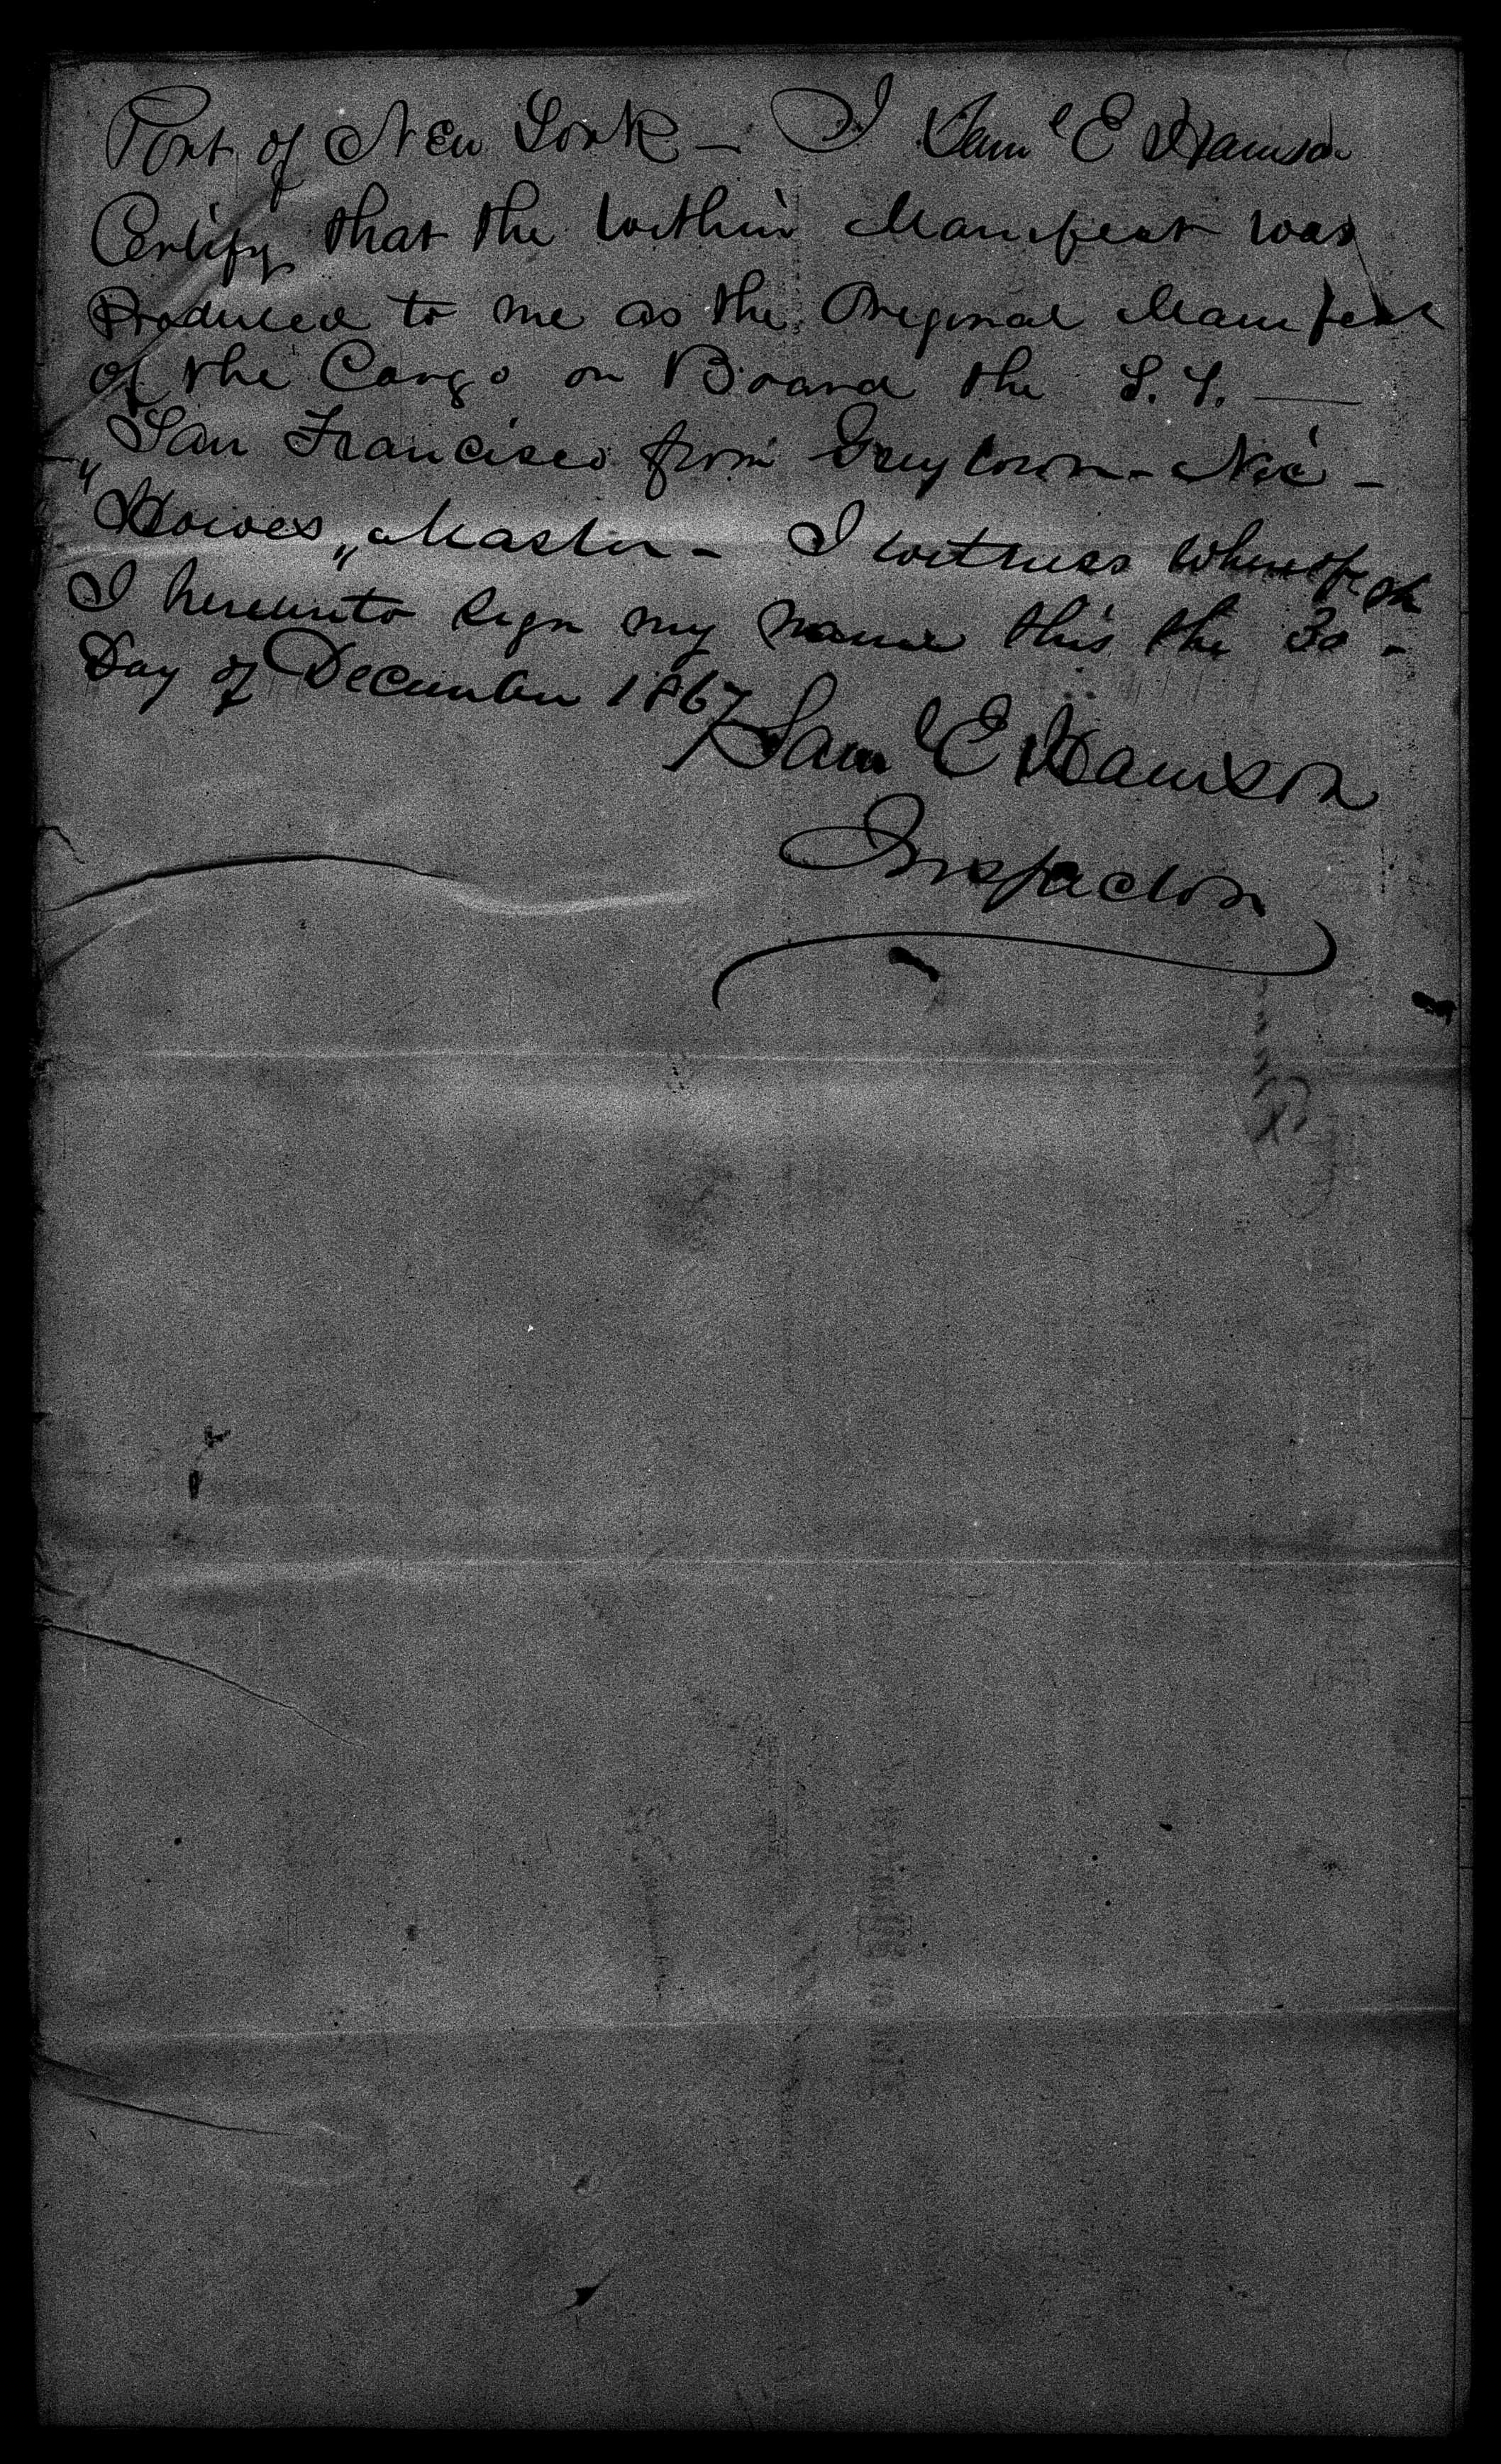 Port of New York — I Sam'l E Harrison
Certify that the within Manifest was
Produced to me as the Original Manifest
of the Cargo on Board the S.S. —
"San Francisco from Greytown - Nic -
"Howes" Master - I witness whereof
I hereunto sign my name this the 30th -
Day of December 1867
Sam'l E Harrison
Inspector